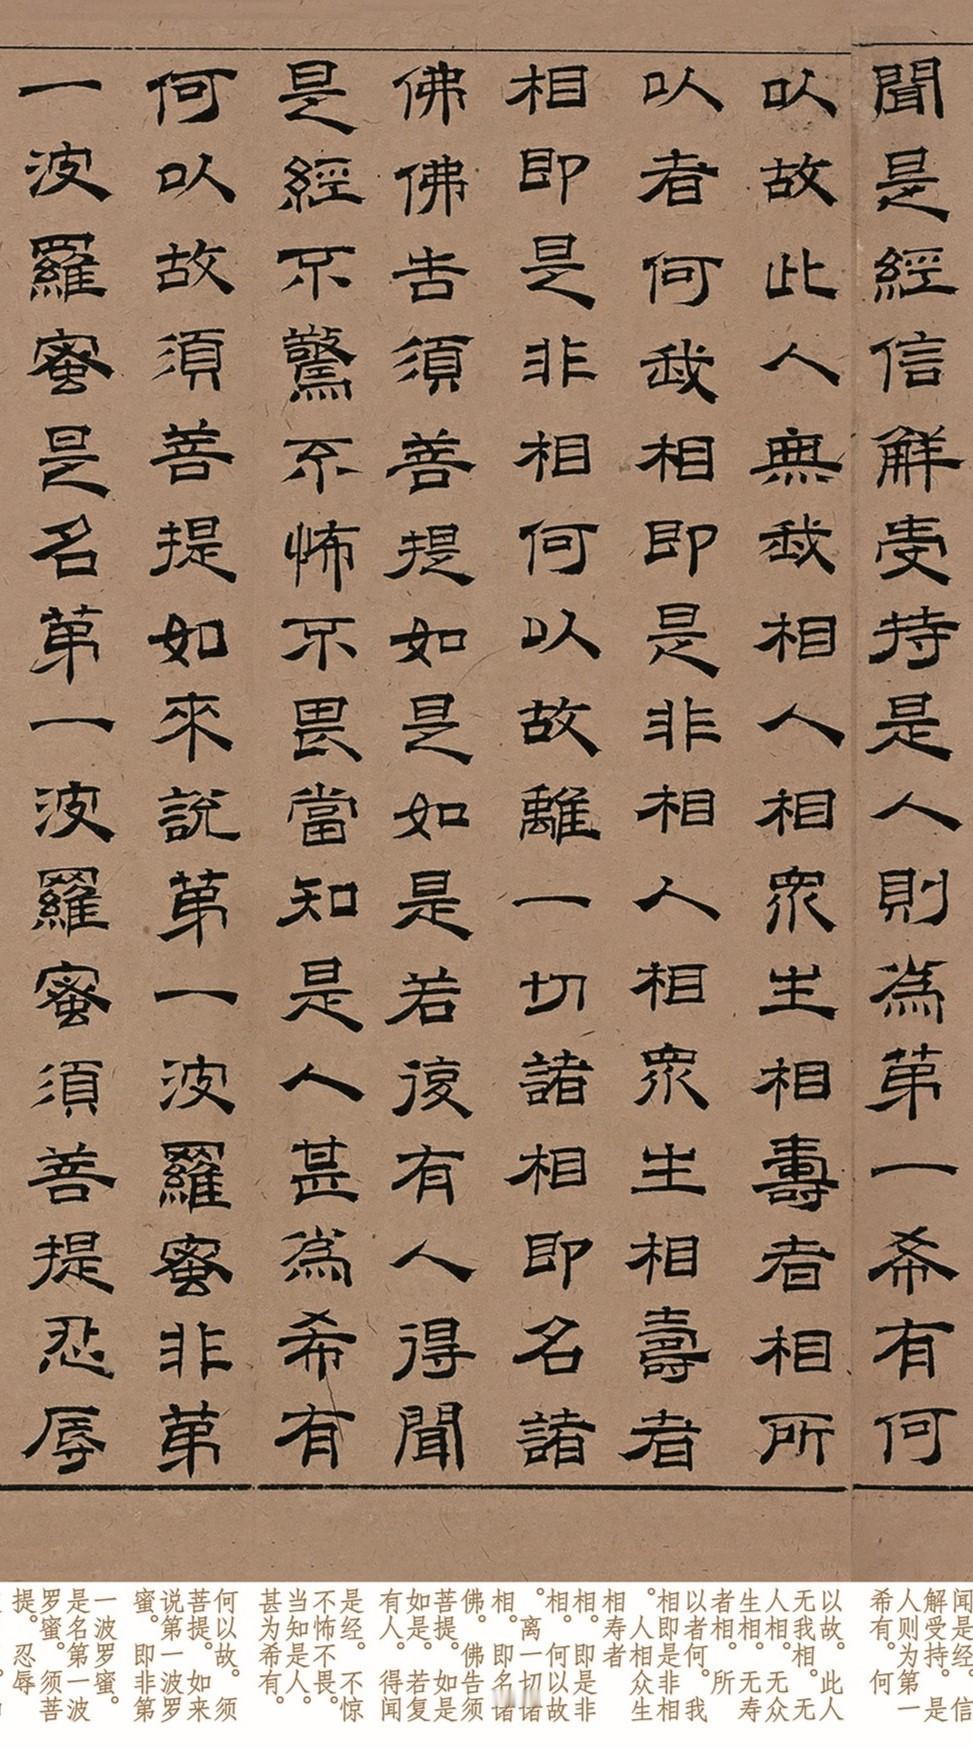 聞是經信解受持是人則為第一希有何
以故此人無我相人相眾生相壽者相所
以者何我相即是非相人相眾生相壽者
相即是非相何以故離一切諸相即名諸
佛佛告須菩提如是如是若復有人得聞
是經不驚不怖不畏當知是人甚為希有
何以故須菩提如來說第一波羅蜜非第
一波羅蜜是名第一波羅蜜須菩提忍辱
闻是经。信
解受持。是
人则为第一
希有。何
以故。此人
无我相。无
人相。无众
生相。无寿
者相。所
以者何。我
相即是非相
。人相众生
相寿者
相。即是非
相。何以故
。离一切诸
相。即名诸
佛。佛告须
菩提。如是
如是。若复
有人。得闻
是经。不惊
不怖不畏。
当知是人。
甚为希有。
何以故。须
菩提。如来
说第一波罗
蜜。即非第
一波罗蜜。
是名第一波
罗蜜。须菩
提。忍辱